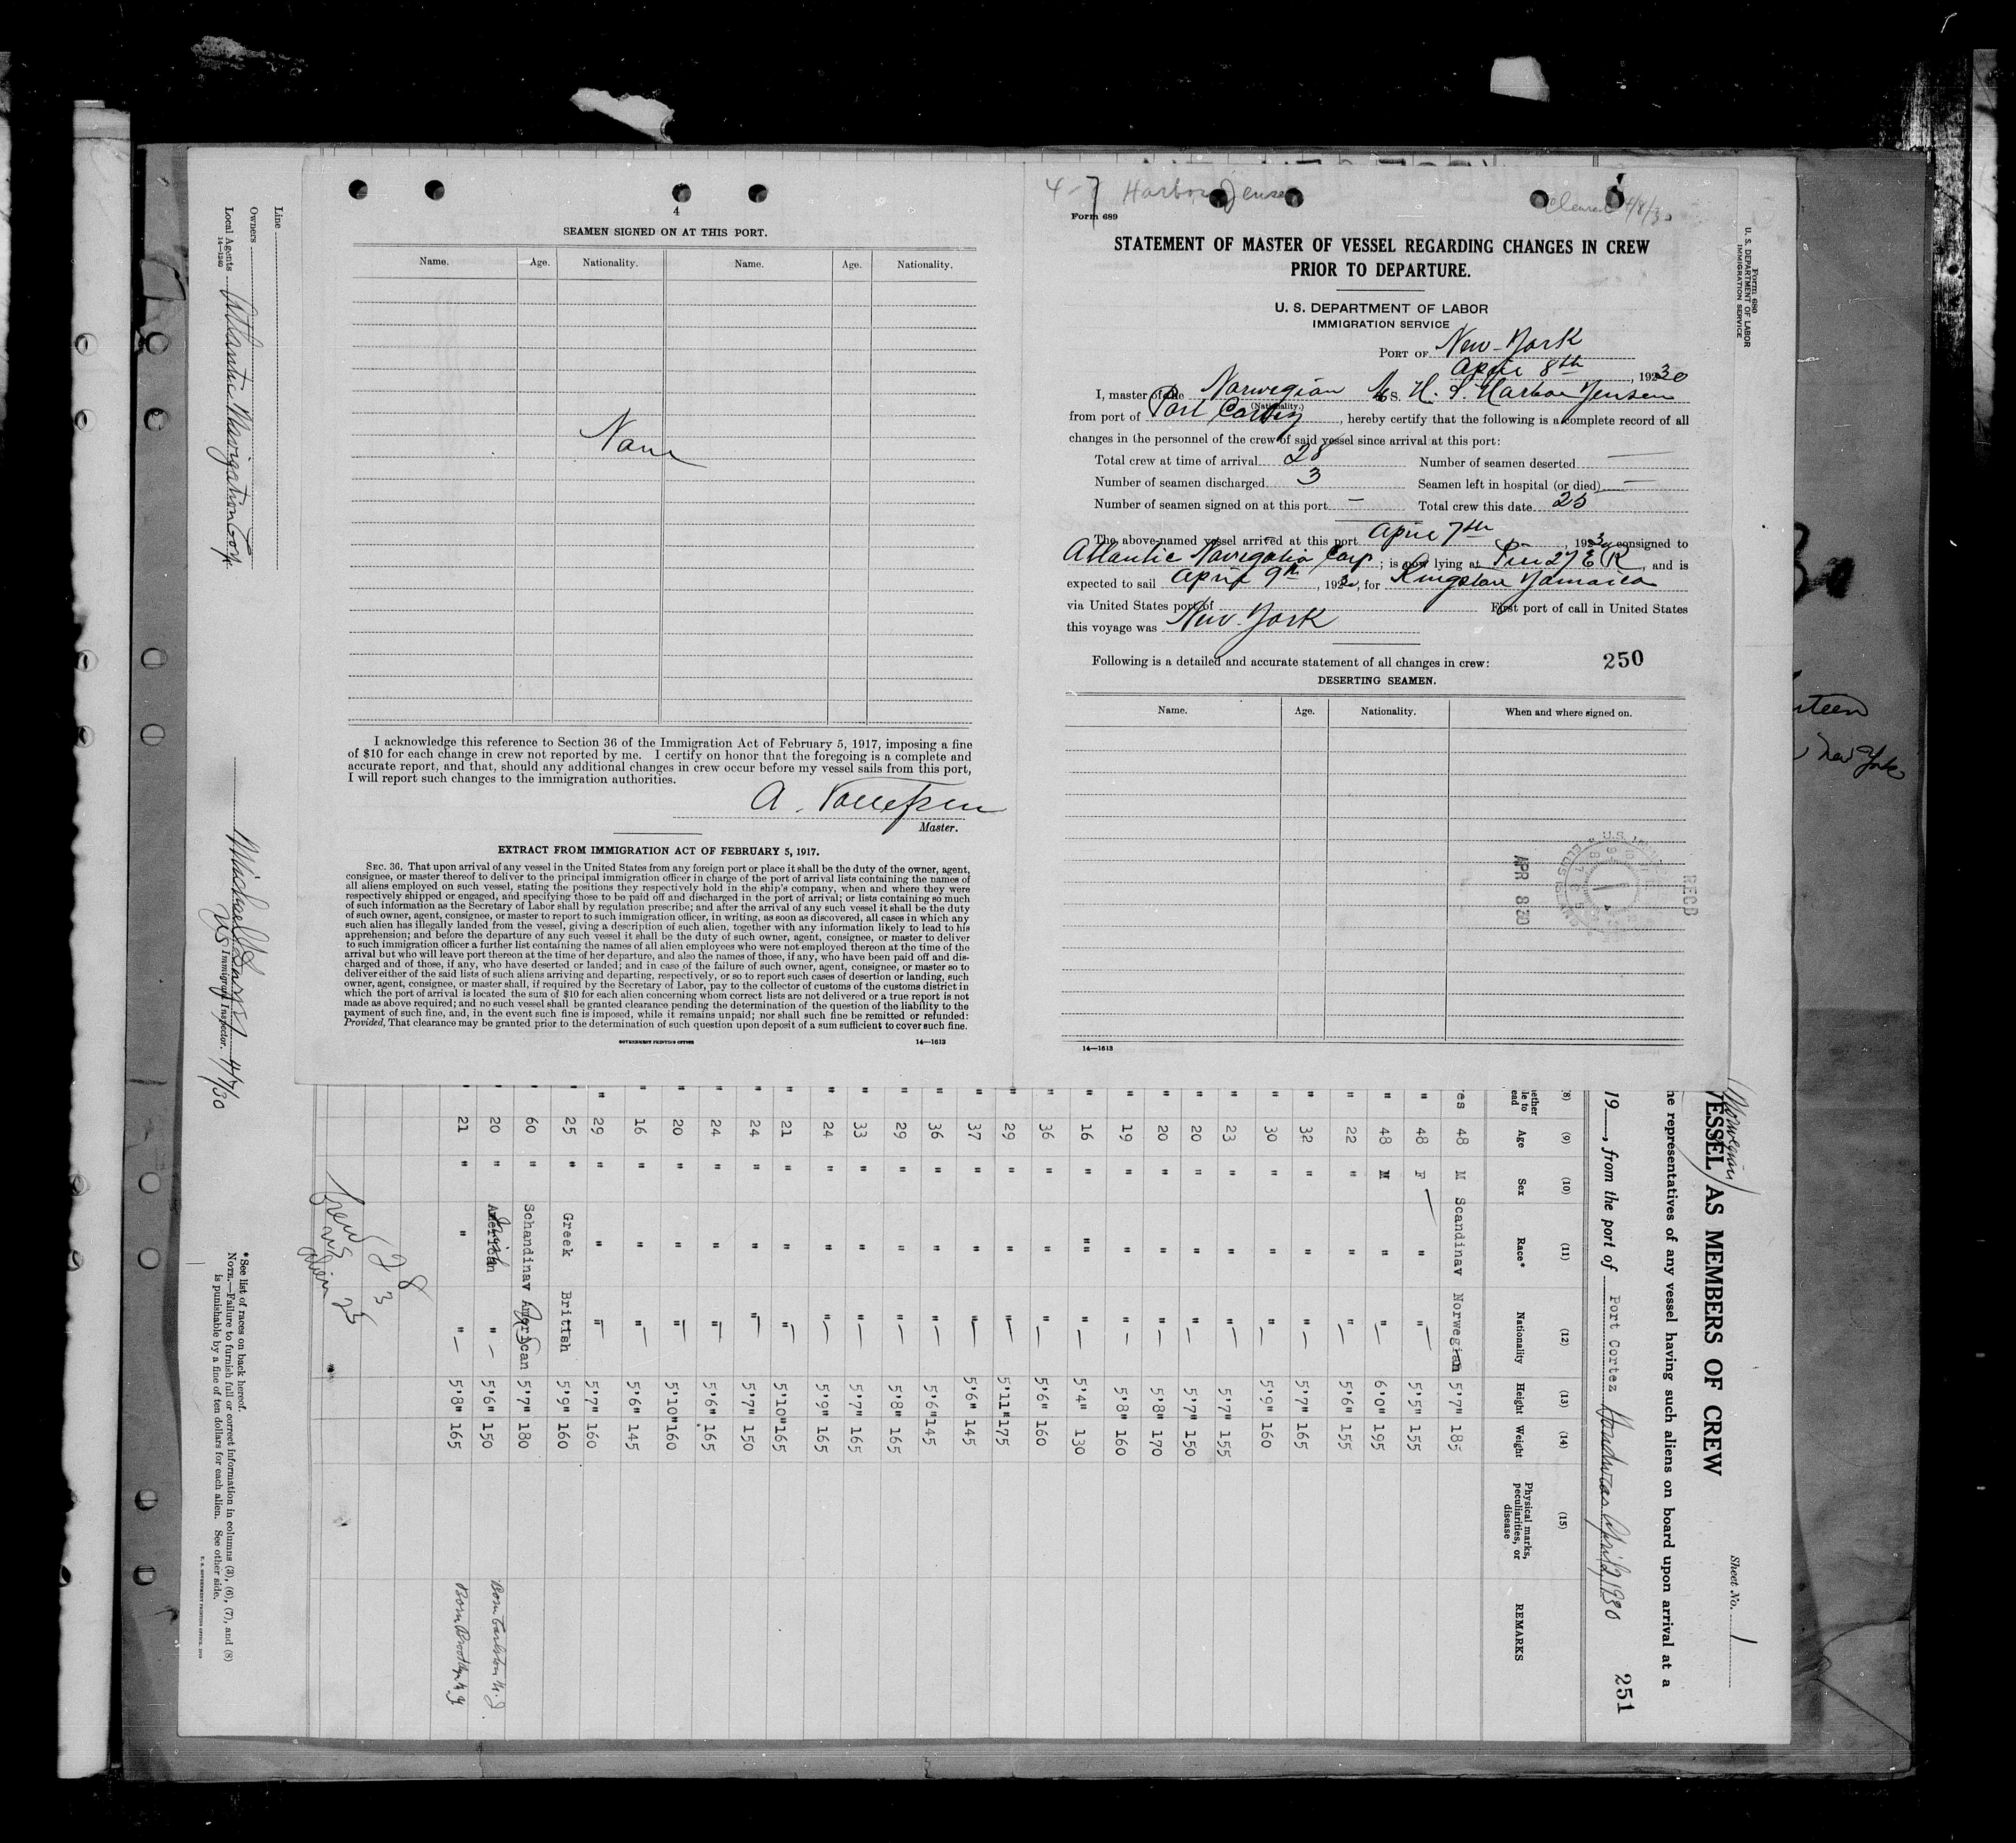 4
SEAMEN SIGNED ON AT THIS PORT.
Name. Age. Nationality. Name. Age. Nationality.
I acknowledge this reference to Section 36 of the Immigration Act of February 5, 1917, imposing a fine
of $10 for each change in crew not reported by me. I certify on honor that the foregoing is a complete and
accurate report, and that, should any additional changes in crew occur before my vessel sails from this port,
I will report such changes to the immigration authorities.
A.
Master.
EXTRACT FROM IMMIGRATION ACT OF FEBRUARY 5, 1917.
SEC. 36. That upon arrival of any vessel in the United States from any foreign port or place it shall be the duty of the owner, agent,
consignee, or master thereof to deliver to the principal immigration officer in charge of the port of arrival lists containing the names of
all aliens employed on such vessel, stating the positions they respectively hold in the ship's company, when and where they were
respectively shipped or engaged, and specifying those to be paid off and discharged in the port of arrival; or lists containing so much
of such information as the Secretary of Labor shall by regulation prescribe; and after the arrival of any such vessel it shall be the duty
of such owner, agent, consignee, or master to report to such immigration officer, in writing, as soon as discovered, all cases in which any
such alien has illegally landed from the vessel, giving a description of such alien, together with any information likely to lead to his
apprehension; and before the departure of any such vessel it shall be the duty of such owner, agent, consignee, or master to deliver
to such immigration officer a further list containing the names of all alien employees who were not employed thereon at the time of the
arrival but who will leave port thereon at the time of her departure, and also the names of those, if any, who have been paid off and dis-
charged and of those, if any, who have deserted or landed; and in case of the failure of such owner, agent, consignee, or master so to
deliver either of the said lists of such aliens arriving and departing, respectively, or so to report such cases of desertion or landing, such
owner, agent, consignee, or master shall, if required by the Secretary of Labor, pay to the collector of customs of the customs district in
which the port of arrival is located the sum of $10 for each alien concerning whom correct lists are not delivered or a true report is not
made as above required; and no such vessel shall be granted clearance pending the determination of the question of the liability to the
payment of such fine, and, in the event such fine is imposed, while it remains unpaid; nor shall such fine be remitted or refunded:
Provided, That clearance may be granted prior to the determination of such question upon deposit of a sum sufficient to cover such fine.
GOVERNMENT PRINTING OFFICE 14—1613
4-7 Harbor Jensen
Cleared 4/8/30
Form 689
STATEMENT OF MASTER OF VESSEL REGARDING CHANGES IN CREW
PRIOR TO DEPARTURE.
U. S. DEPARTMENT OF LABOR
IMMIGRATION SERVICE
PORT OF New-York
April 8th, 1930
I, master of the Norwegian S. H. S. Harbor Jensen
(Nationality.)
from port of Port Cortez, hereby certify that the following is a complete record of all
changes in the personnel of the crew of said vessel since arrival at this port:
Total crew at time of arrival 28 Number of seamen deserted —
Number of seamen discharged 3 Seamen left in hospital (or died) —
Number of seamen signed on at this port — Total crew this date 25
The above-named vessel arrived at this port April 7th, 1930 consigned to
Atlantic Navigation Corp; is now lying at Pier 27 E R, and is
expected to sail April 9th, 1930, for Kingston Jamaica
via United States port of First port of call in United States
this voyage was New-York
Following is a detailed and accurate statement of all changes in crew: 250
DESERTING SEAMEN.
Name. Age. Nationality. When and where signed on.
APR 8 30
RECD
14—1613
Form 689
U. S. DEPARTMENT OF LABOR
IMMIGRATION SERVICE
New York
Sheet No. 1
Norwegian
VESSEL AS MEMBERS OF CREW
he representatives of any vessel having such aliens on board upon arrival at a
19—, from the port of Port Cortez Honduras April 1, 1930
251
(8) (9) (10) (11) (12) (13) (14) (15)
Age Sex Race* Nationality Height Weight Physical marks, peculiarities, or disease REMARKS
es 48 M Scandinav Norwegian 5'7" 185
" 48 F — " " — 5'5" 155
" 48 M " " — 6'0" 195
" 22 " " " — 5'6" 155
" 32 " " " — 5'7" 165
" 30 " " " — 5'9" 160
" 23 " " " — 5'7" 155
" 20 " " " — 5'7" 150
" 20 " " " — 5'8" 170
" 19 " " " — 5'8" 160
" 16 " "" " — 5'4" 130
" 36 " " " — 5'6" 160
" 29 " " " — 5'11" 175
" 37 " " " — 5'6" 145
" 36 " " " — 5'6" 145
" 29 " " " — 5'8" 165
" 33 " " " — 5'7" 165
" 24 " " " — 5'9" 165
" 21 " " " — 5'10" 165
" 24 " " " — 5'7" 150
" 24 " " " — 5'6" 165
" 20 " " " — 5'10" 160
" 16 " " " — 5'6" 145
" 29 " " " — 5'7" 160
" 25 " Greek British 5'9" 160
" 60 " Schandinav American 5'7" 180
" 20 " American " — 5'6" 150
" 21 " " " — 5'8" 165 Born Brooklyn N.Y.
Crew 28
3
25
*See list of races on back hereof.
NOTE.—Failure to furnish full or correct information in columns (3), (6), (7), and (8)
is punishable by a fine of ten dollars for each alien. See other side.
Line
Owners
Local Agents Atlantic Navigation Corp.
14—1240
US Immigrant Inspector. 4/7/30